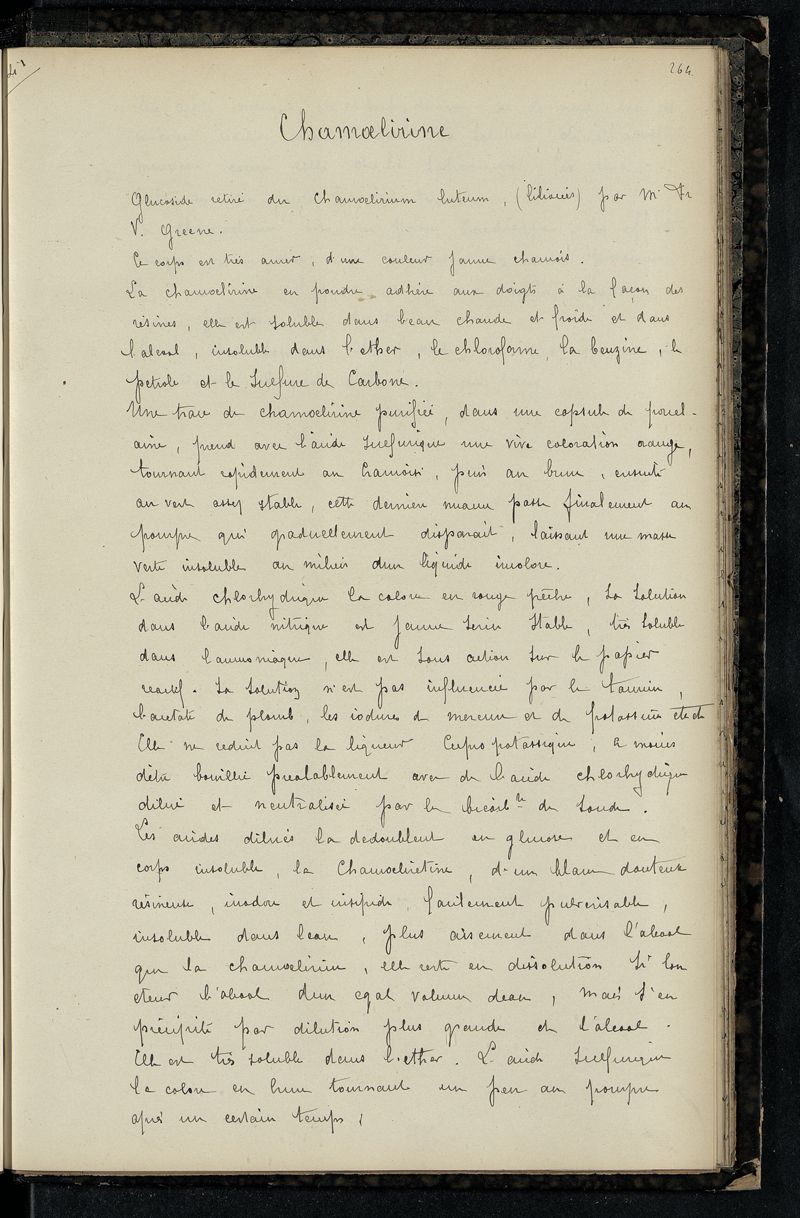 264
Chamœlirine
Glucoside retiré du Chamoelirium luteum, (liliacées) par Mr Fr
V. Greene.
Ce corps est très amer, d'une couleur jaune chamois.
La chamoelirine en poudre adhère aux doigts à la façon des
résines, elle est soluble dans l'eau chaude et froide et dans
l'alcool, insoluble dans l'ether, le chloroforme, la benzine, le
pétrole et le Sulfure de Carbone.
Une trace de chamoelirine purifiée, dans une capsule de porcel-
aine, prend avec l'acide Sulfurique une vive coloration orange,
tournant rapidement au Cramoisi, puis au brun, ensuite
au vert assez stable, cette dernière nuance passe finalement au
pourpre qui graduellement disparait, laissant une masse
verte insoluble au milieu d'un liquide incolore.
L'acide chlorhydrique la colore en rouge pêche, La Solution
dans l'acide nitrique est jaune serin stable, très soluble
dans l'ammoniaque, elle est sans action sur le papier
reactif. La Solution n'est pas influencée par le tannin,
l'acétate de plomb, les iodures de mercure et de potassium etc
Elle ne reduit pas la liqueur Cupro potassique, à moins
d'être bouillie prealablement avec de l'acide chlorhydrique
dilué et neutralisée par le bicarbte de Soude.
Les acides dilués la dedoublent en glucose et en
corps insoluble, la Chamoeliretine, d'un blanc douteux
résineuse, inodore et insipide, facilement pulverisable,
insoluble dans l'eau, plus aisement dans l'alcool
que la chamoelirine, elle reste en dissolution si l'on
etend l'alcool d'un egal volume d'eau, mais s'en
précipite par dilution plus grande de l'alcool.
Elle est très soluble dans l'ether. L'acide Sulfurique
la colore en brun tournant un peu au pourpre
après un certain temps